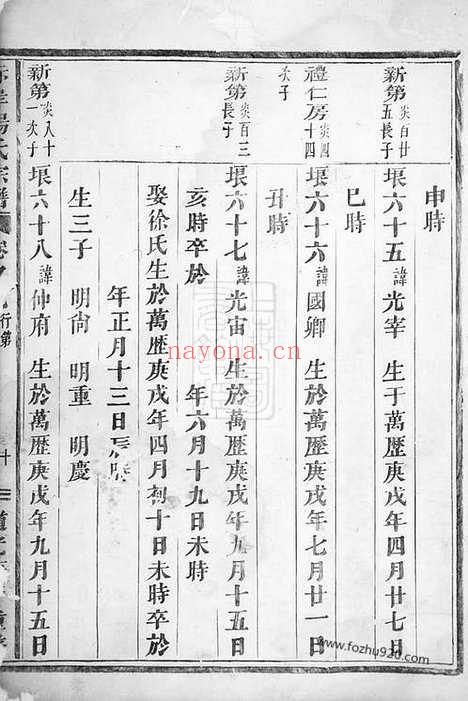 申時
新第 炎百廿五長子 堌六十五 諱光宰 生于萬歷庚戌年四月廿七日
巳時
禮仁房 炎四十四次子 堌六十六 諱國卿 生於萬歷庚戌年七月廿一日
丑時
新第 炎百三長子 堌六十七 諱光宙 生於萬歷庚戌年九月十五日
亥時卒於 年六月十九日未時
娶徐氏生於萬歷庚戌年四月初十日未時卒於
年正月十三日辰時
生三子 明尙 明重 明慶
新第 炎八十一次子 堌六十八 諱仲府 生於萬歷庚戌年九月十五日
楊氏宗譜 卷 行第
道光
nayona.cn
www.fozhu920.com